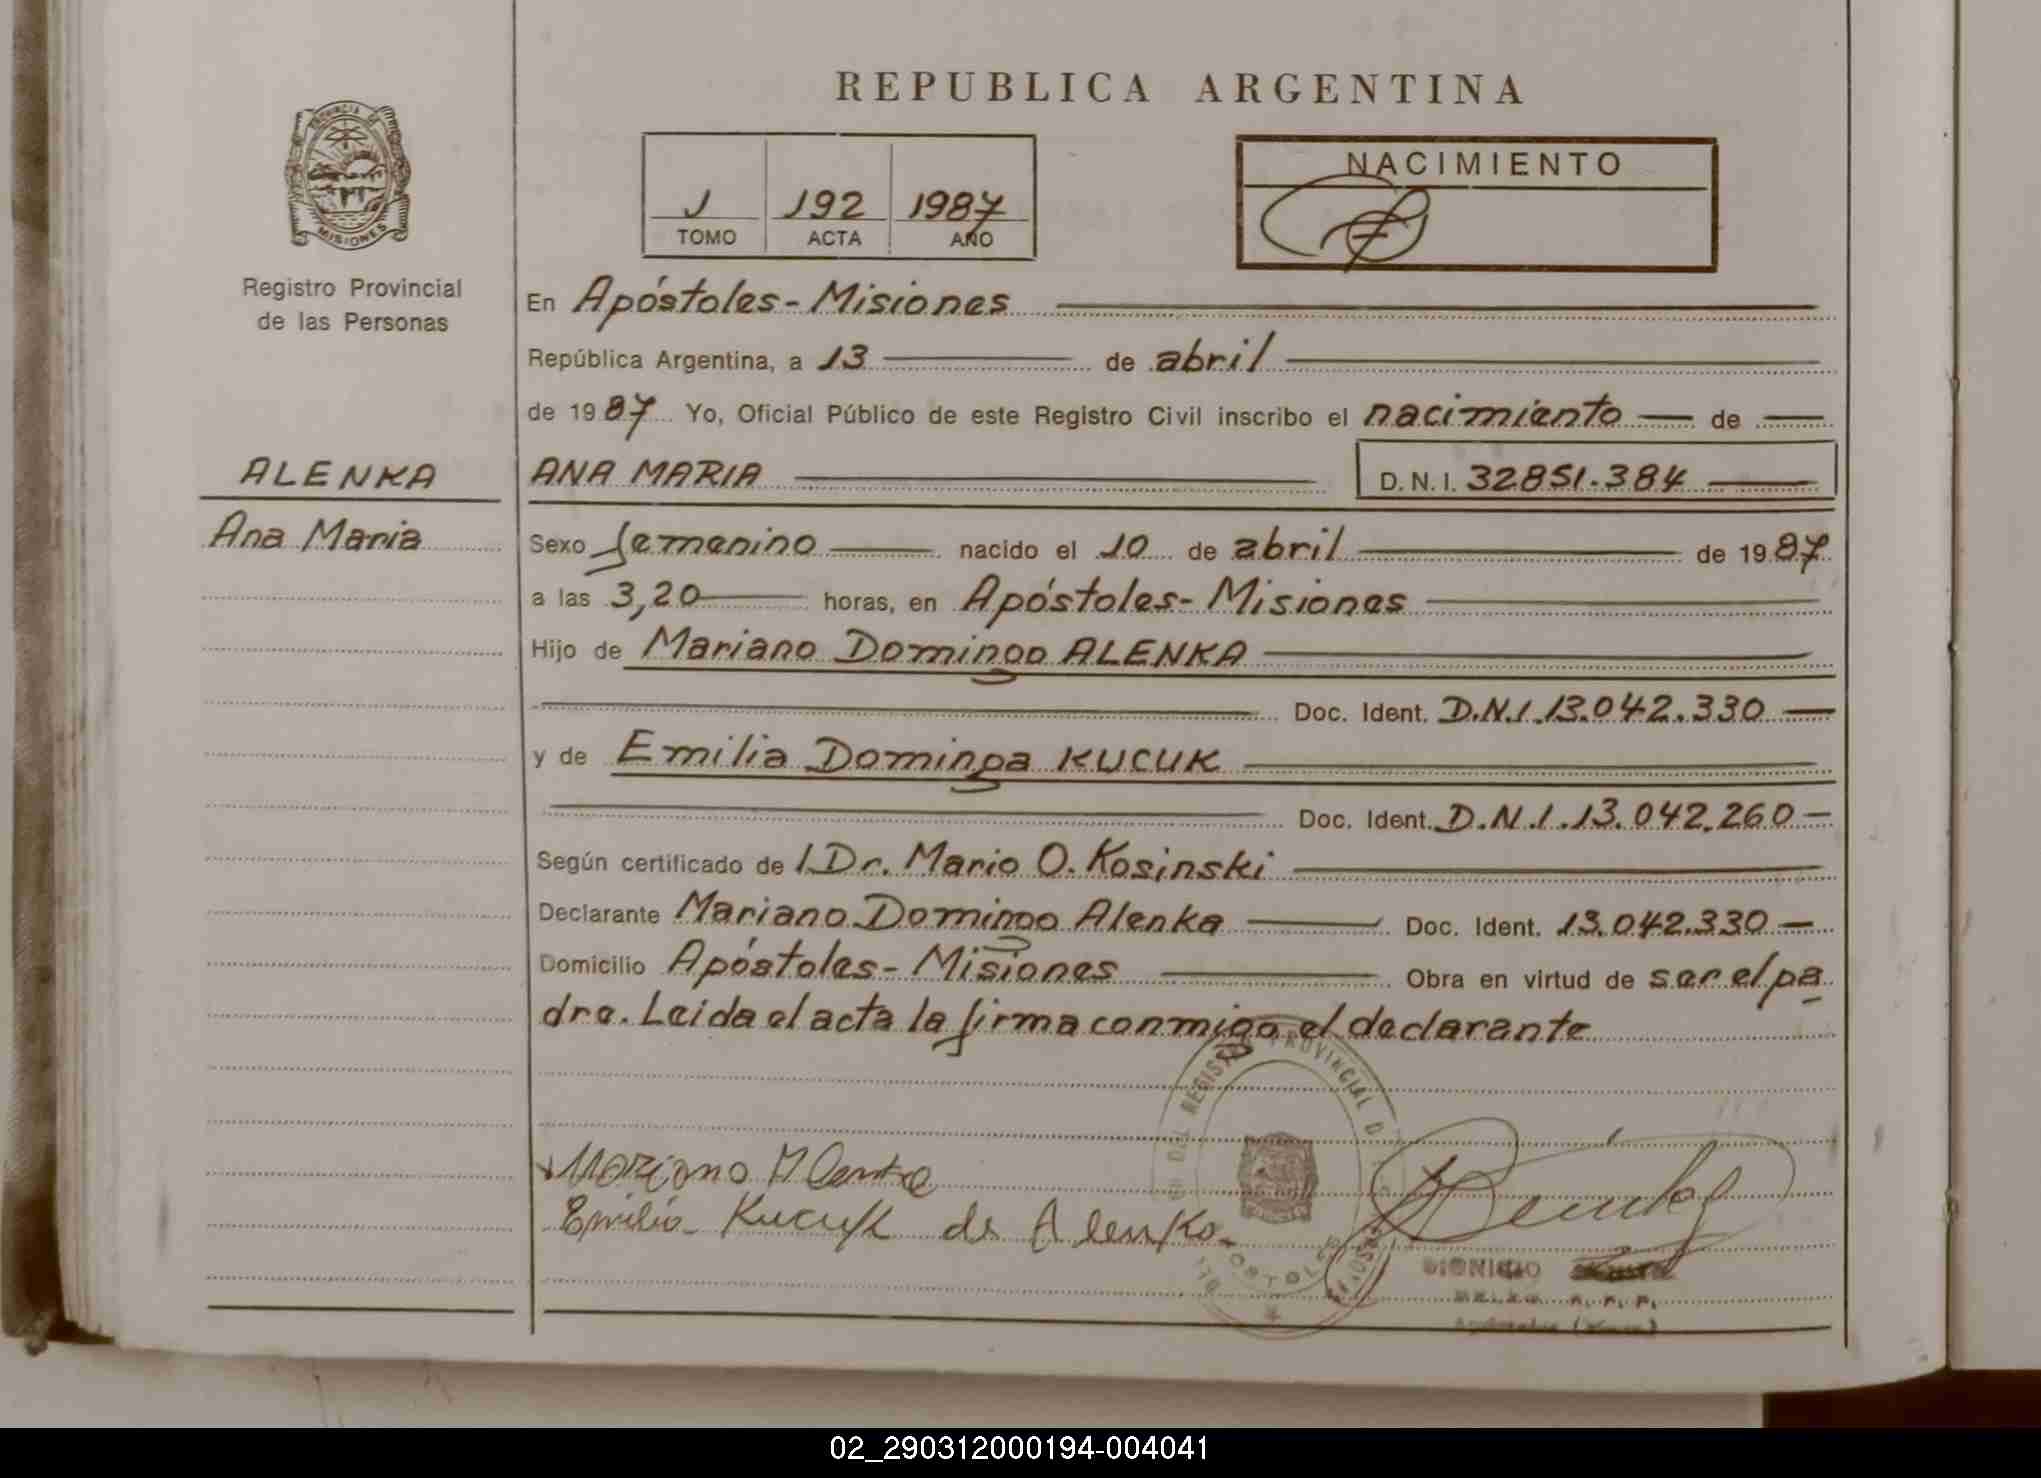 REPUBLICA ARGENTINA
PROVINCIA DE
MISIONES
Registro Provincial
de las Personas
1 192 1987
TOMO ACTA AÑO
NACIMIENTO
En Apóstoles - Misiones
República Argentina, a 13 de abril
de 1987 Yo, Oficial Público de este Registro Civil inscribo el nacimiento de
ALENKA
ANA MARIA D.N.I. 32851.384
Ana Maria
Sexo femenino nacido el 10 de abril de 1987
a las 3,20 horas, en Apóstoles - Misiones
Hijo de Mariano Domingo ALENKA
Doc. Ident. D.N.I. 13.042.330
y de Emilia Dominga KUCUK
Doc. Ident. D.N.I. 13.042.260
Según certificado de l Dr. Mario O. Kosinski
Declarante Mariano Domingo Alenka Doc. Ident. 13.042.330
Domicilio Apóstoles - Misiones Obra en virtud de ser el pa
dre. Leida el acta la firma conmigo el declarante
DEL REGISTRO PROVINCIAL DE
Mariano Alenka
Emilia Kucuk de Alenka
DIONICIO
02_290312000194-004041